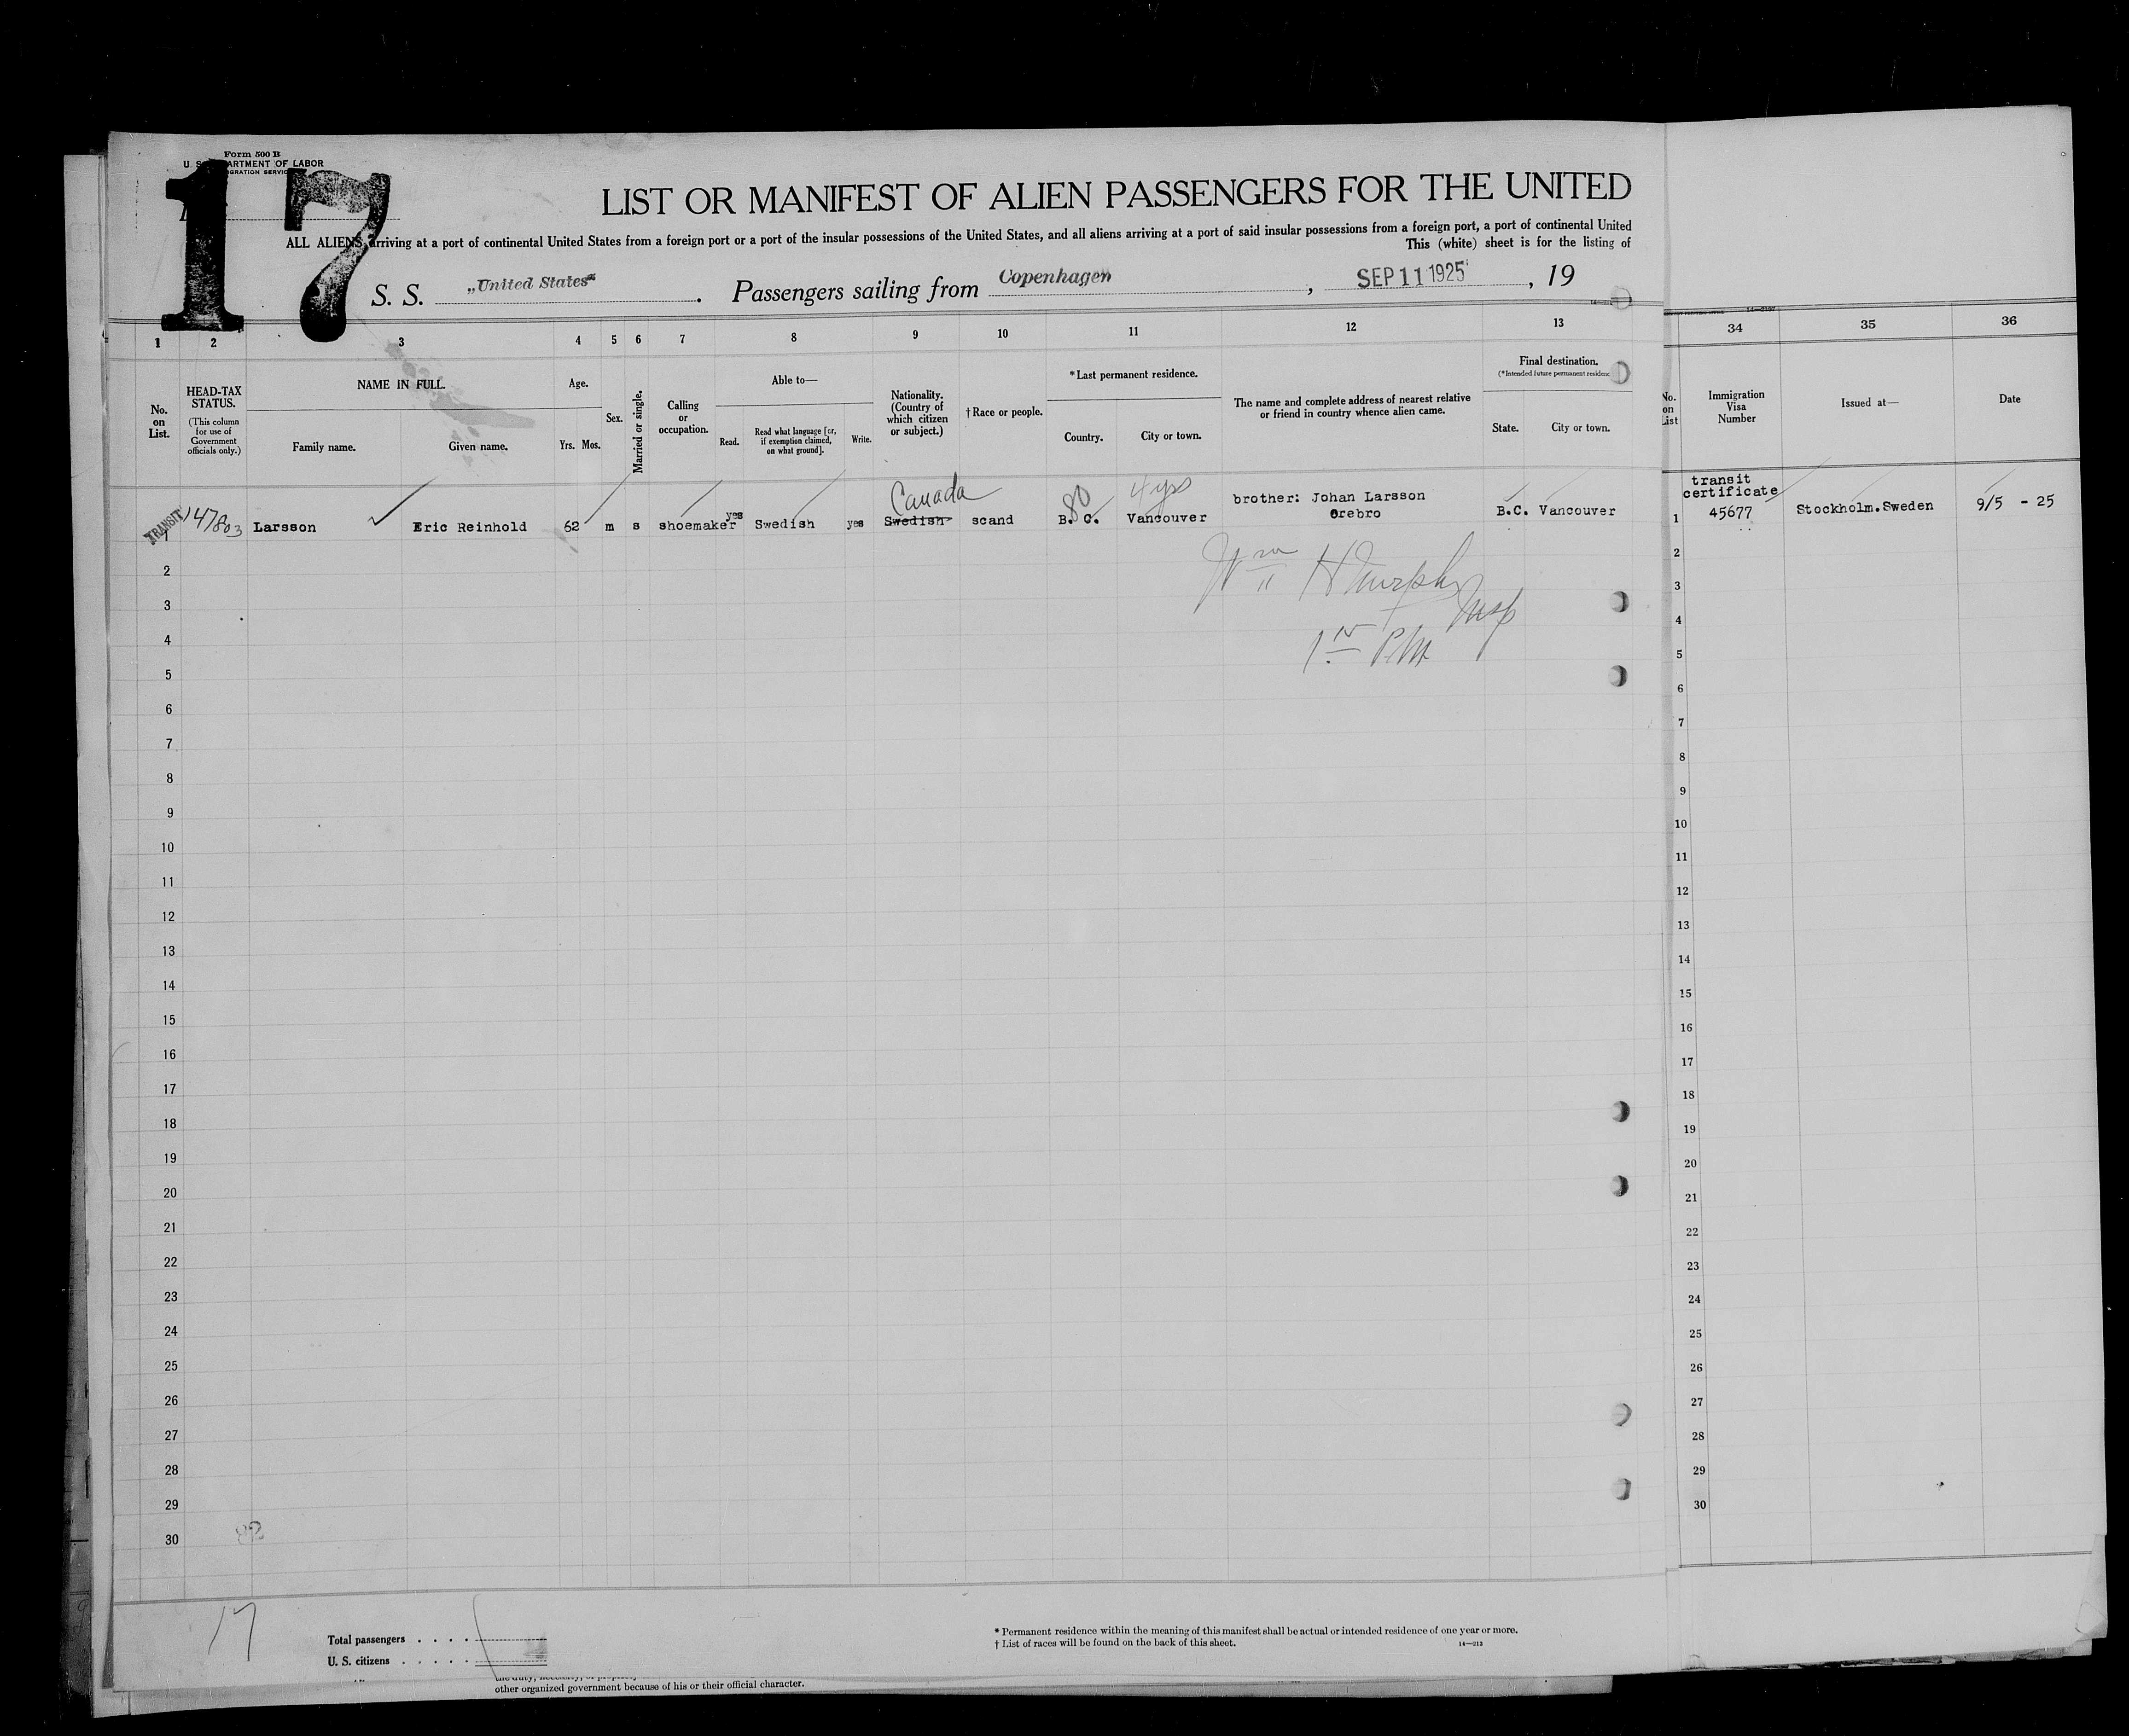 Form 500 B
U. S. DEPARTMENT OF LABOR
IMMIGRATION SERVICE
17
LIST OR MANIFEST OF ALIEN PASSENGERS FOR THE UNITED
ALL ALIENS arriving at a port of continental United States from a foreign port or a port of the insular possessions of the United States, and all aliens arriving at a port of said insular possessions from a foreign port, a port of continental United
This (white) sheet is for the listing of
S. S. „United States" . Passengers sailing from Copenhagen , SEP 11 1925 , 19
1 2 3 4 5 6 7 8 9 10 11 12 13 34 35 36
No. on List.
HEAD-TAX STATUS.
(This column for use of Government officials only.)
NAME IN FULL.
Family name. Given name.
Age.
Yrs. Mos.
Sex.
Married or single.
Calling or occupation.
Able to—
Read. Read what language [or, if exemption claimed, on what ground]. Write.
Nationality. (Country of which citizen or subject.)
†Race or people.
*Last permanent residence.
Country. City or town.
The name and complete address of nearest relative or friend in country whence alien came.
Final destination.
(*Intended future permanent residence
State. City or town.
No. on List
Immigration Visa Number
Issued at—
Date
TRANSIT 147803
1 Larsson Eric Reinhold 62 m s shoemaker yes Swedish yes Swedish scand B. C. Vancouver brother: Johan Larsson B.C. Vancouver
Canada
80
4 yrs
Orebro
1 transit certificate 45677 Stockholm.Sweden 9/5 - 25
Wm H Murphy
Insp
P.M.
2 2
3 3
4 4
5 5
6 6
7 7
8 8
9 9
10 10
11 11
12 12
13 13
14 14
15 15
16 16
17 17
18 18
19 19
20 20
21 21
22 22
23 23
24 24
25 25
26 26
27 27
28 28
29 29
30 30
17
Total passengers . . . .
U. S. citizens . . . . .
* Permanent residence within the meaning of this manifest shall be actual or intended residence of one year or more.
† List of races will be found on the back of this sheet.
14—213
other organized government because of his or their official character.